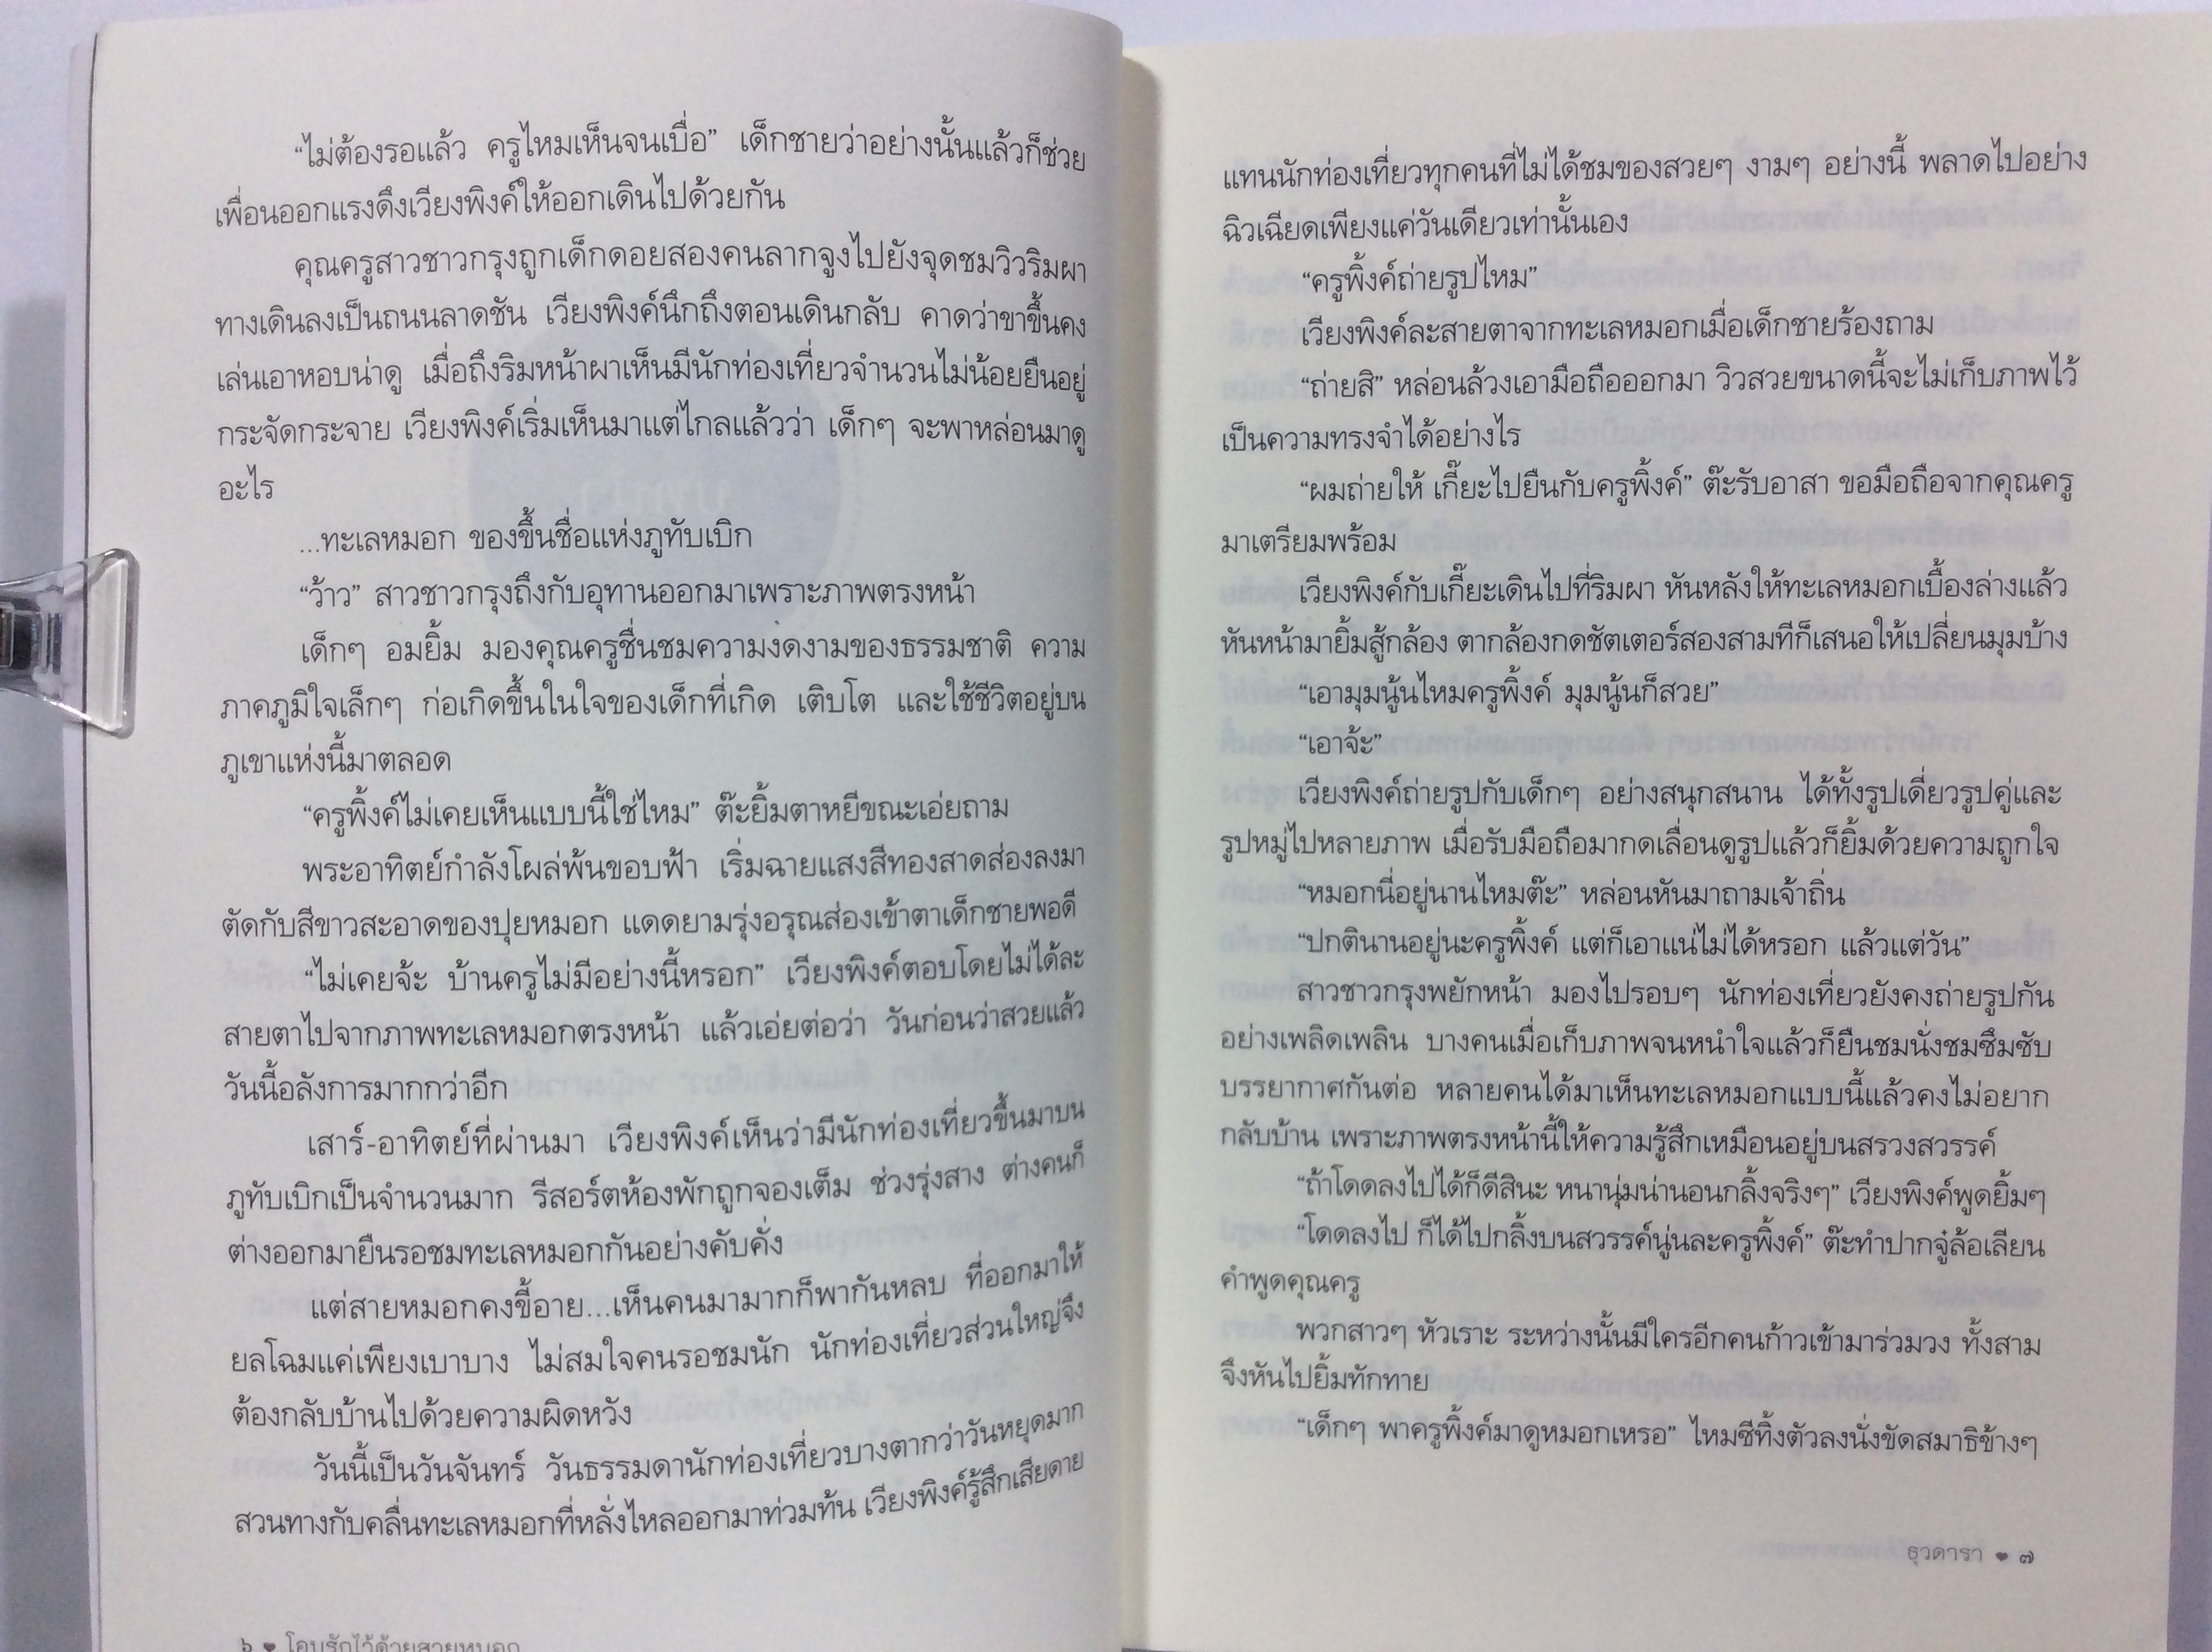 “ไม่ต้องรอแล้ว ครูไหมเห็นจนเบื่อ” เด็กชายว่าอย่างนั้นแล้วก็ช่วย
เพื่อนออกแรงดึงเวียงพิงค์ให้ออกเดินไปด้วยกัน
คุณครูสาวชาวกรุงถูกเด็กดอยสองคนลากจูงไปยังจุดชมวิวริมผา
ทางเดินลงเป็นถนนลาดชัน เวียงพิงค์นึกถึงตอนเดินกลับ คาดว่าขาขึ้นคง
เล่นเอาหอบน่าดู เมื่อถึงริมหน้าผาเห็นมีนักท่องเที่ยวจำนวนไม่น้อยยืนอยู่
กระจัดกระจาย เวียงพิงค์เริ่มเห็นมาแต่ไกลแล้วว่า เด็กๆ จะพาหล่อนมาดู
อะไร
...ทะเลหมอก ของขึ้นชื่อแห่งภูทับเบิก
“ว้าว” สาวชาวกรุงถึงกับอุทานออกมาเพราะภาพตรงหน้า
เด็กๆ อมยิ้ม มองคุณครูชื่นชมความงดงามของธรรมชาติ ความ
ภาคภูมิใจเล็กๆ ก่อเกิดขึ้นในใจของเด็กที่เกิด เติบโต และใช้ชีวิตอยู่บน
ภูเขาแห่งนี้มาตลอด
“ครูพิ้งค์ไม่เคยเห็นแบบนี้ใช่ไหม” ต๊ะยิ้มตาหยีขณะเอ่ยถาม
พระอาทิตย์กำลังโผล่พ้นขอบฟ้า เริ่มฉายแสงสีทองสาดส่องลงมา
ตัดกับสีขาวสะอาดของปุยหมอก แดดยามรุ่งอรุณส่องเข้าตาเด็กชายพอดี
“ไม่เคยจ้ะ บ้านครูไม่มีอย่างนี้หรอก” เวียงพิงค์ตอบโดยไม่ได้ละ
สายตาไปจากภาพทะเลหมอกตรงหน้า แล้วเอ่ยต่อว่า วันก่อนว่าสวยแล้ว
วันนี้อลังการมากกว่าอีก
เสาร์-อาทิตย์ที่ผ่านมา เวียงพิงค์เห็นว่ามีนักท่องเที่ยวขึ้นมาบน
ภูทับเบิกเป็นจำนวนมาก รีสอร์ตห้องพักถูกจองเต็ม ช่วงรุ่งสาง ต่างคนก็
ต่างออกมายืนรอชมทะเลหมอกกันอย่างคับคั่ง
แต่สายหมอกคงขี้อาย...เห็นคนมามากก็พากันหลบ ที่ออกมาให้
ยลโฉมแค่เพียงเบาบาง ไม่สมใจคนรอชมนัก นักท่องเที่ยวส่วนใหญ่จึง
ต้องกลับบ้านไปด้วยความผิดหวัง
วันนี้เป็นวันจันทร์ วันธรรมดานักท่องเที่ยวบางตากว่าวันหยุดมาก
สวนทางกับคลื่นทะเลหมอกที่หลั่งไหลออกมาท่วมท้น เวียงพิงค์รู้สึกเสียดาย
๖ ❤ โอบรักไว้ด้วยสายหมอก
แทนนักท่องเที่ยวทุกคนที่ไม่ได้ชมของสวยๆ งามๆ อย่างนี้ พลาดไปอย่าง
ฉิวเฉียดเพียงแค่วันเดียวเท่านั้นเอง
“ครูพิ้งค์ถ่ายรูปไหม”
เวียงพิงค์ละสายตาจากทะเลหมอกเมื่อเด็กชายร้องถาม
“ถ่ายสิ” หล่อนล้วงเอามือถือออกมา วิวสวยขนาดนี้จะไม่เก็บภาพไว้
เป็นความทรงจำได้อย่างไร
“ผมถ่ายให้ เกี๊ยะไปยืนกับครูพิ้งค์” ต๊ะรับอาสา ขอมือถือจากคุณครู
มาเตรียมพร้อม
เวียงพิงค์กับเกี๊ยะเดินไปที่ริมผา หันหลังให้ทะเลหมอกเบื้องล่างแล้ว
หันหน้ามายิ้มสู้กล้อง ตากล้องกดชัตเตอร์สองสามทีก็เสนอให้เปลี่ยนมุมบ้าง
“เอามุมนู้นไหมครูพิ้งค์ มุมนู้นก็สวย”
“เอาจ้ะ”
เวียงพิงค์ถ่ายรูปกับเด็กๆ อย่างสนุกสนาน ได้ทั้งรูปเดี่ยวรูปคู่และ
รูปหมู่ไปหลายภาพ เมื่อรับมือถือมากดเลื่อนดูรูปแล้วก็ยิ้มด้วยความถูกใจ
“หมอกนี่อยู่นานไหมต๊ะ” หล่อนหันมาถามเจ้าถิ่น
“ปกตินานอยู่นะครูพิ้งค์ แต่ก็เอาแน่ไม่ได้หรอก แล้วแต่วัน”
สาวชาวกรุงพยักหน้า มองไปรอบๆ นักท่องเที่ยวยังคงถ่ายรูปกัน
อย่างเพลิดเพลิน บางคนเมื่อเก็บภาพจนหนำใจแล้วก็ยืนชมนั่งชมซึมซับ
บรรยากาศกันต่อ หลายคนได้มาเห็นทะเลหมอกแบบนี้แล้วคงไม่อยาก
กลับบ้าน เพราะภาพตรงหน้านี้ให้ความรู้สึกเหมือนอยู่บนสรวงสวรรค์
“ถ้าโดดลงไปได้ก็ดีสินะ หนานุ่มน่านอนกลิ้งจริงๆ” เวียงพิงค์พูดยิ้มๆ
“โดดลงไป ก็ได้ไปกลิ้งบนสวรรค์นู่นละครูพิ้งค์” ต๊ะทำปากจู๋ล้อเลียน
คำพูดคุณครู
พวกสาวๆ หัวเราะ ระหว่างนั้นมีใครอีกคนก้าวเข้ามาร่วมวง ทั้งสาม
จึงหันไปยิ้มทักทาย
“เด็กๆ พาครูพิ้งค์มาดูหมอกเหรอ” ไหมซีทิ้งตัวลงนั่งขัดสมาธิข้างๆ
ธุวดารา ❤ ๗